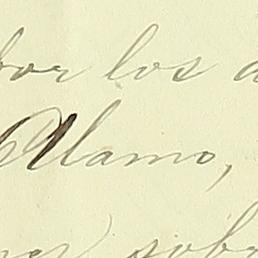 por los
Alamo,
sob